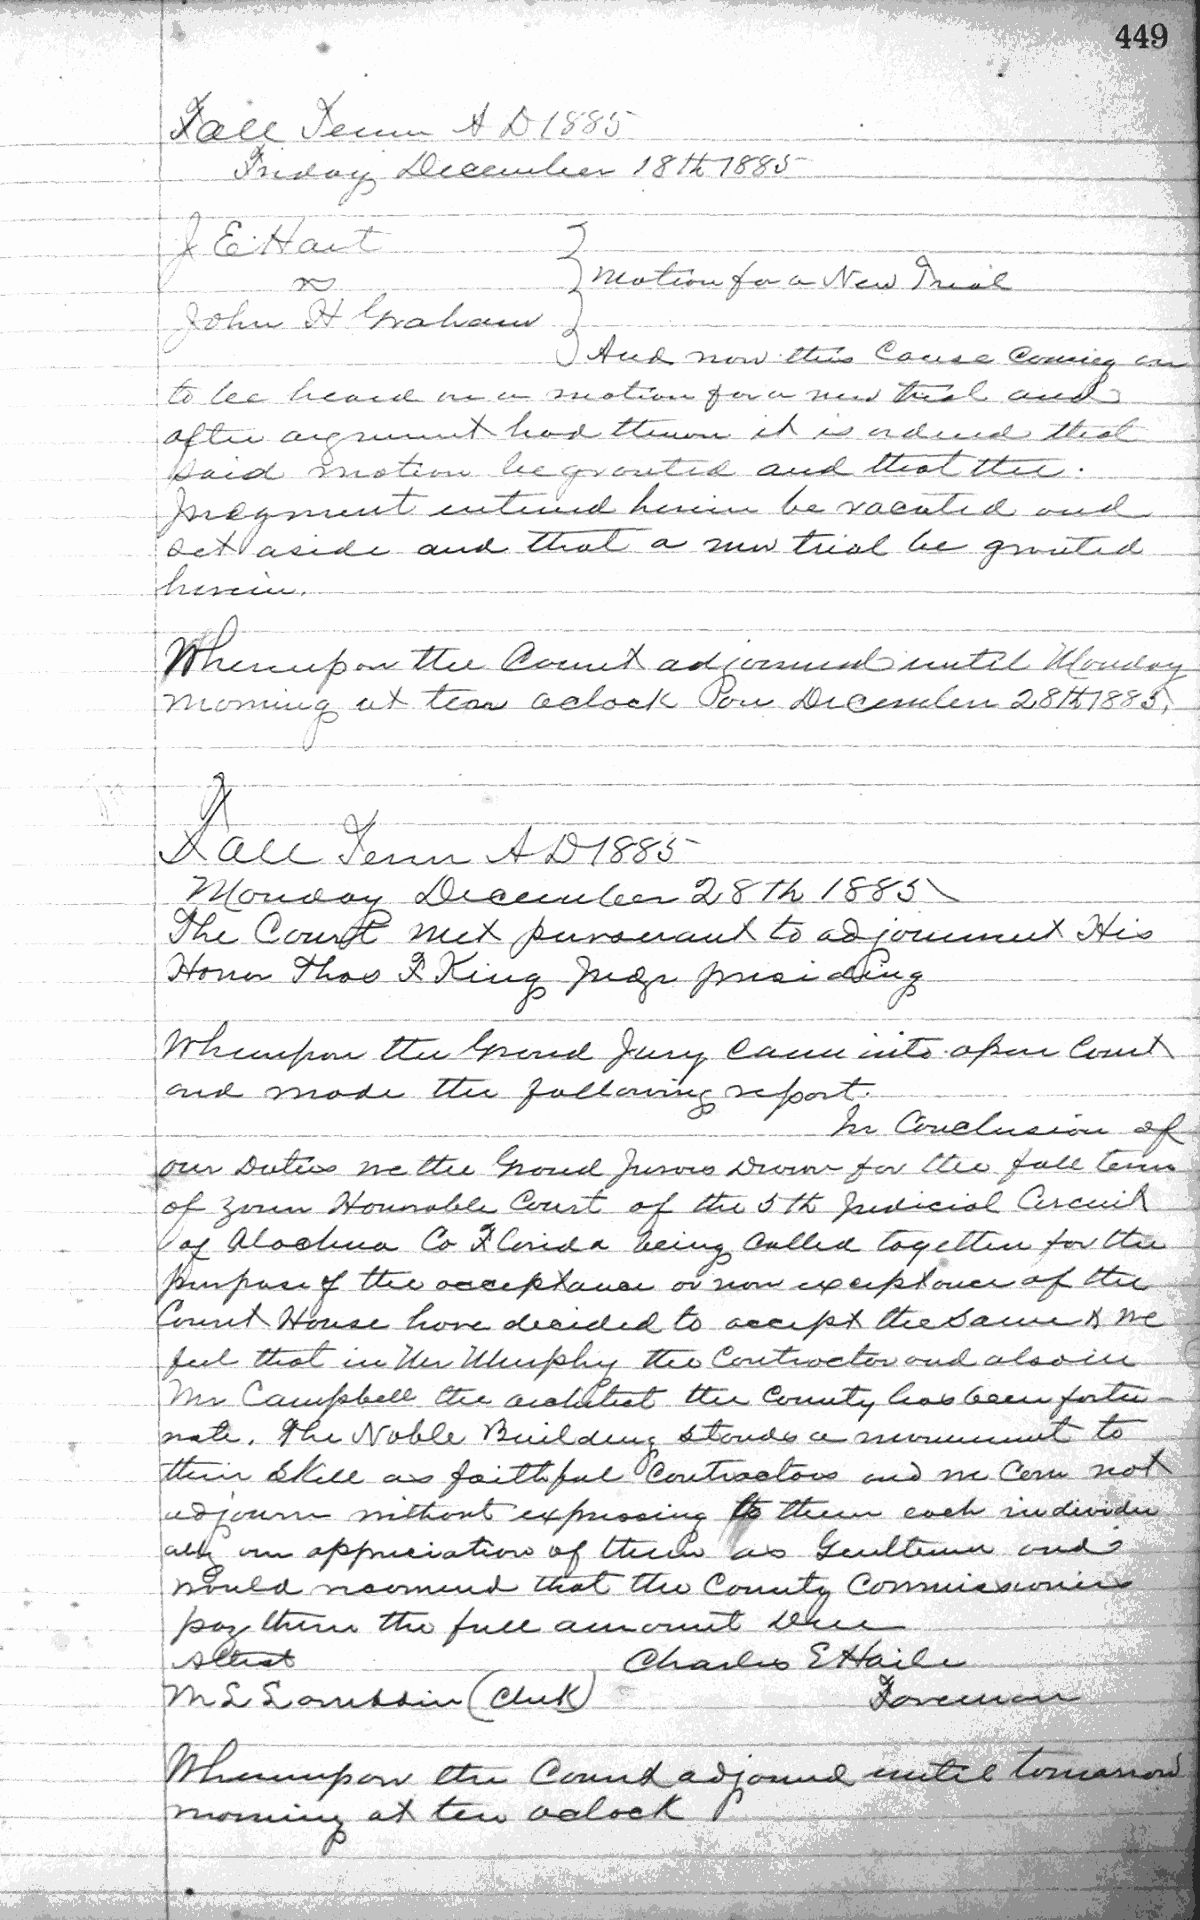 449
Fall Term A D 1885
Friday December 18th 1885
J E Hart
vs
Motion for a New Trial
John H Graham
And now this Cause Coming on
to be heard on a motion for a new trial and
after argument had thereon it is ordered that
said motion be granted and that the
Judgment entered herein be vacated and
set aside and that a new trial be granted
herein.
Whereupon the Court adjourned until Monday
morning at ten oclock December 28th 1885,
Fall Term A D 1885
Monday December 28th 1885
The Court met pursuant to adjournment His
Honor Thos F King Judge presiding
Whereupon the Grand Jury came into open Court
and made the following report.
In Conclusion of
our Duties we the Grand Jurors Drawn for the fall term
of your Honorable Court of the 5th Judicial Circuit
of Alachua Co Florida being Called together for the
purpose of the acceptance or non exceptance of the
Court House have decided to accept the same & we
feel that in Mr Murphy the Contractor and also in
Mr Campbell the architect the County has been fortu-
nate. The Noble Building stands a monument to
their skill as faithful Contractors and we Can not
adjourn without expressing to them each individu
ally our appreciation of them as Gentlemen and
would recomend that the County Commissioners
pay them the full amount Due
Attest Charles E Haile
M L (Clerk) Foreman
Whereupon the Court adjourned until tomorrow
morning at ten oclock